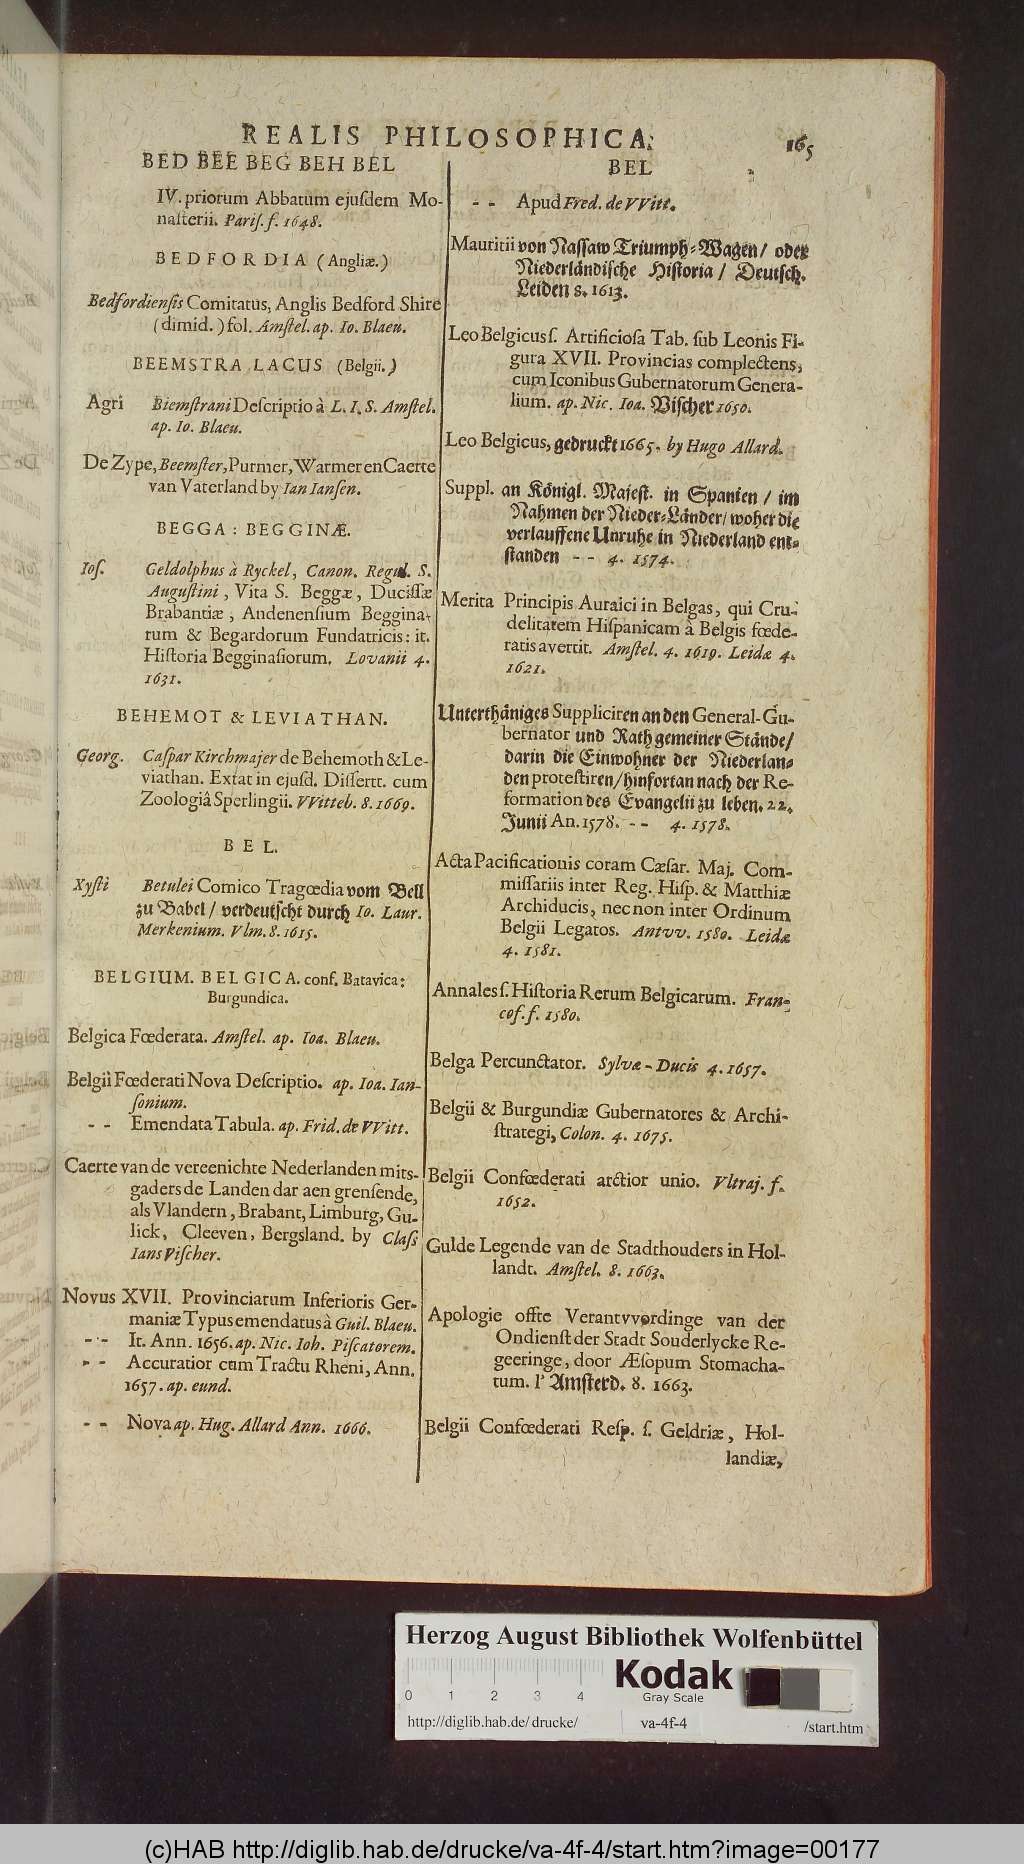 REALIS PHILOSOPHICA.
165
BED BEE BEG BEH BEL
IV. priorum Abbatum ejuſdem Mo-
naſterii. Pariſ. f. 1648.
BEDFORDIA (Angliæ.)
Bedfordienſis Comitatus, Anglis Bedford Shire
(dimid.) fol. Amſtel. ap. Io. Blaeu.
BEEMSTRA LACUS (Belgii.)
Agri Biemſtrani Deſcriptio à L. I. S. Amſtel.
ap. Io. Blaeu.
De Zype, Beemſter, Purmer, Warmer en Caerte
van Vaterland by Ian Ianſen.
BEGGA: BEGGINÆ.
Ioſ. Geldolphus à Ryckel, Canon. Regul. S.
Auguſtini, Vita S. Beggæ, Duciſſæ
Brabantiæ, Andenenſium Beggina-
rum & Begardorum Fundatricis: it.
Hiſtoria Begginaſiorum. Lovanii 4.
1631.
BEHEMOT & LEVIATHAN.
Georg. Caſpar Kirchmajer de Behemoth & Le-
viathan. Extat in ejuſd. Diſſertt. cum
Zoologiâ Sperlingii. VVitteb. 8. 1669.
BEL.
Xyſti Betulei Comico Tragœdia vom Bell
zu Babel / verdeutſcht durch Io. Laur.
Merkenium. Vlm. 8. 1615.
BELGIUM. BELGICA. conf. Batavica:
Burgundica.
Belgica Fœderata. Amſtel. ap. Ioa. Blaeu.
Belgii Fœderati Nova Deſcriptio. ap. Ioa. Ian-
ſonium.
- - Emendata Tabula. ap. Frid. de VVitt.
Caerte van de vereenichte Nederlanden mits-
gaders de Landen dar aen grenſende,
als Vlandern, Brabant, Limburg, Gu-
lick, Cleeven, Bergsland. by Claſs
Ians Viſcher.
Novus XVII. Provinciatum Inferioris Ger-
maniæ Typus emendatus à Guil. Blaeu.
- - It. Ann. 1656. ap. Nic. Ioh. Piſcatorem.
- - Accuratior cum Tractu Rheni, Ann.
1657. ap. eund.
- - Nova ap. Hug. Allard Ann. 1666.
BEL
- - Apud Fred. de VVitt.
Mauritii von Naſſaw Triumph-Wagen / oder
Niederländiſche Hiſtoria / Deutſch.
Leiden 8. 1613.
Leo Belgicus ſ. Artificioſa Tab. ſub Leonis Fi-
gura XVII. Provincias complectens,
cum Iconibus Gubernatorum Genera-
lium. ap. Nic. Ioa. Viſcher 1650.
Leo Belgicus, gedruckt 1665. by Hugo Allard.
Suppl. an Königl. Majeſt. in Spanien / im
Nahmen der Nieder-Länder / woher die
verlauffene Unruhe in Niederland ent-
ſtanden - - 4. 1574.
Merita Principis Auraici in Belgas, qui Cru-
delitatem Hiſpanicam à Belgis fœde-
ratis avertit. Amſtel. 4. 1619. Leidæ 4.
1621.
Unterthäniges Suppliciren an den General-Gu-
bernator und Rath gemeiner Stände /
darin die Einwohner der Niederlan-
den proteſtiren / hinfortan nach der Re-
formation des Evangelii zu leben. 22.
Junii An. 1578. - - 4. 1578.
Acta Pacificationis coram Cæſar. Maj. Com-
miſſariis inter Reg. Hiſp. & Matthiæ
Archiducis, nec non inter Ordinum
Belgii Legatos. Antvv. 1580. Leidæ
4. 1581.
Annales ſ. Hiſtoria Rerum Belgicarum. Fran-
cof. f. 1580.
Belga Percunctator. Sylvæ-Ducis 4. 1657.
Belgii & Burgundiæ Gubernatores & Archi-
ſtrategi, Colon. 4. 1675.
Belgii Confœderati arctior unio. Vltraj. f.
1652.
Gulde Legende van de Stadthouders in Hol-
landt. Amſtel. 8. 1663.
Apologie offte Verantvvordinge van der
Ondienſt der Stadt Souderlycke Re-
geeringe, door Æſopum Stomacha-
tum. l' Amſterd. 8. 1663.
Belgii Confœderati Reſp. ſ. Geldriæ, Hol-
landiæ,
Herzog August Bibliothek Wolfenbüttel
0 1 2 3 4
Kodak
Gray Scale
http://diglib.hab.de/drucke/
va-4f-4
/start.htm
(c)HAB http://diglib.hab.de/drucke/va-4f-4/start.htm?image=00177